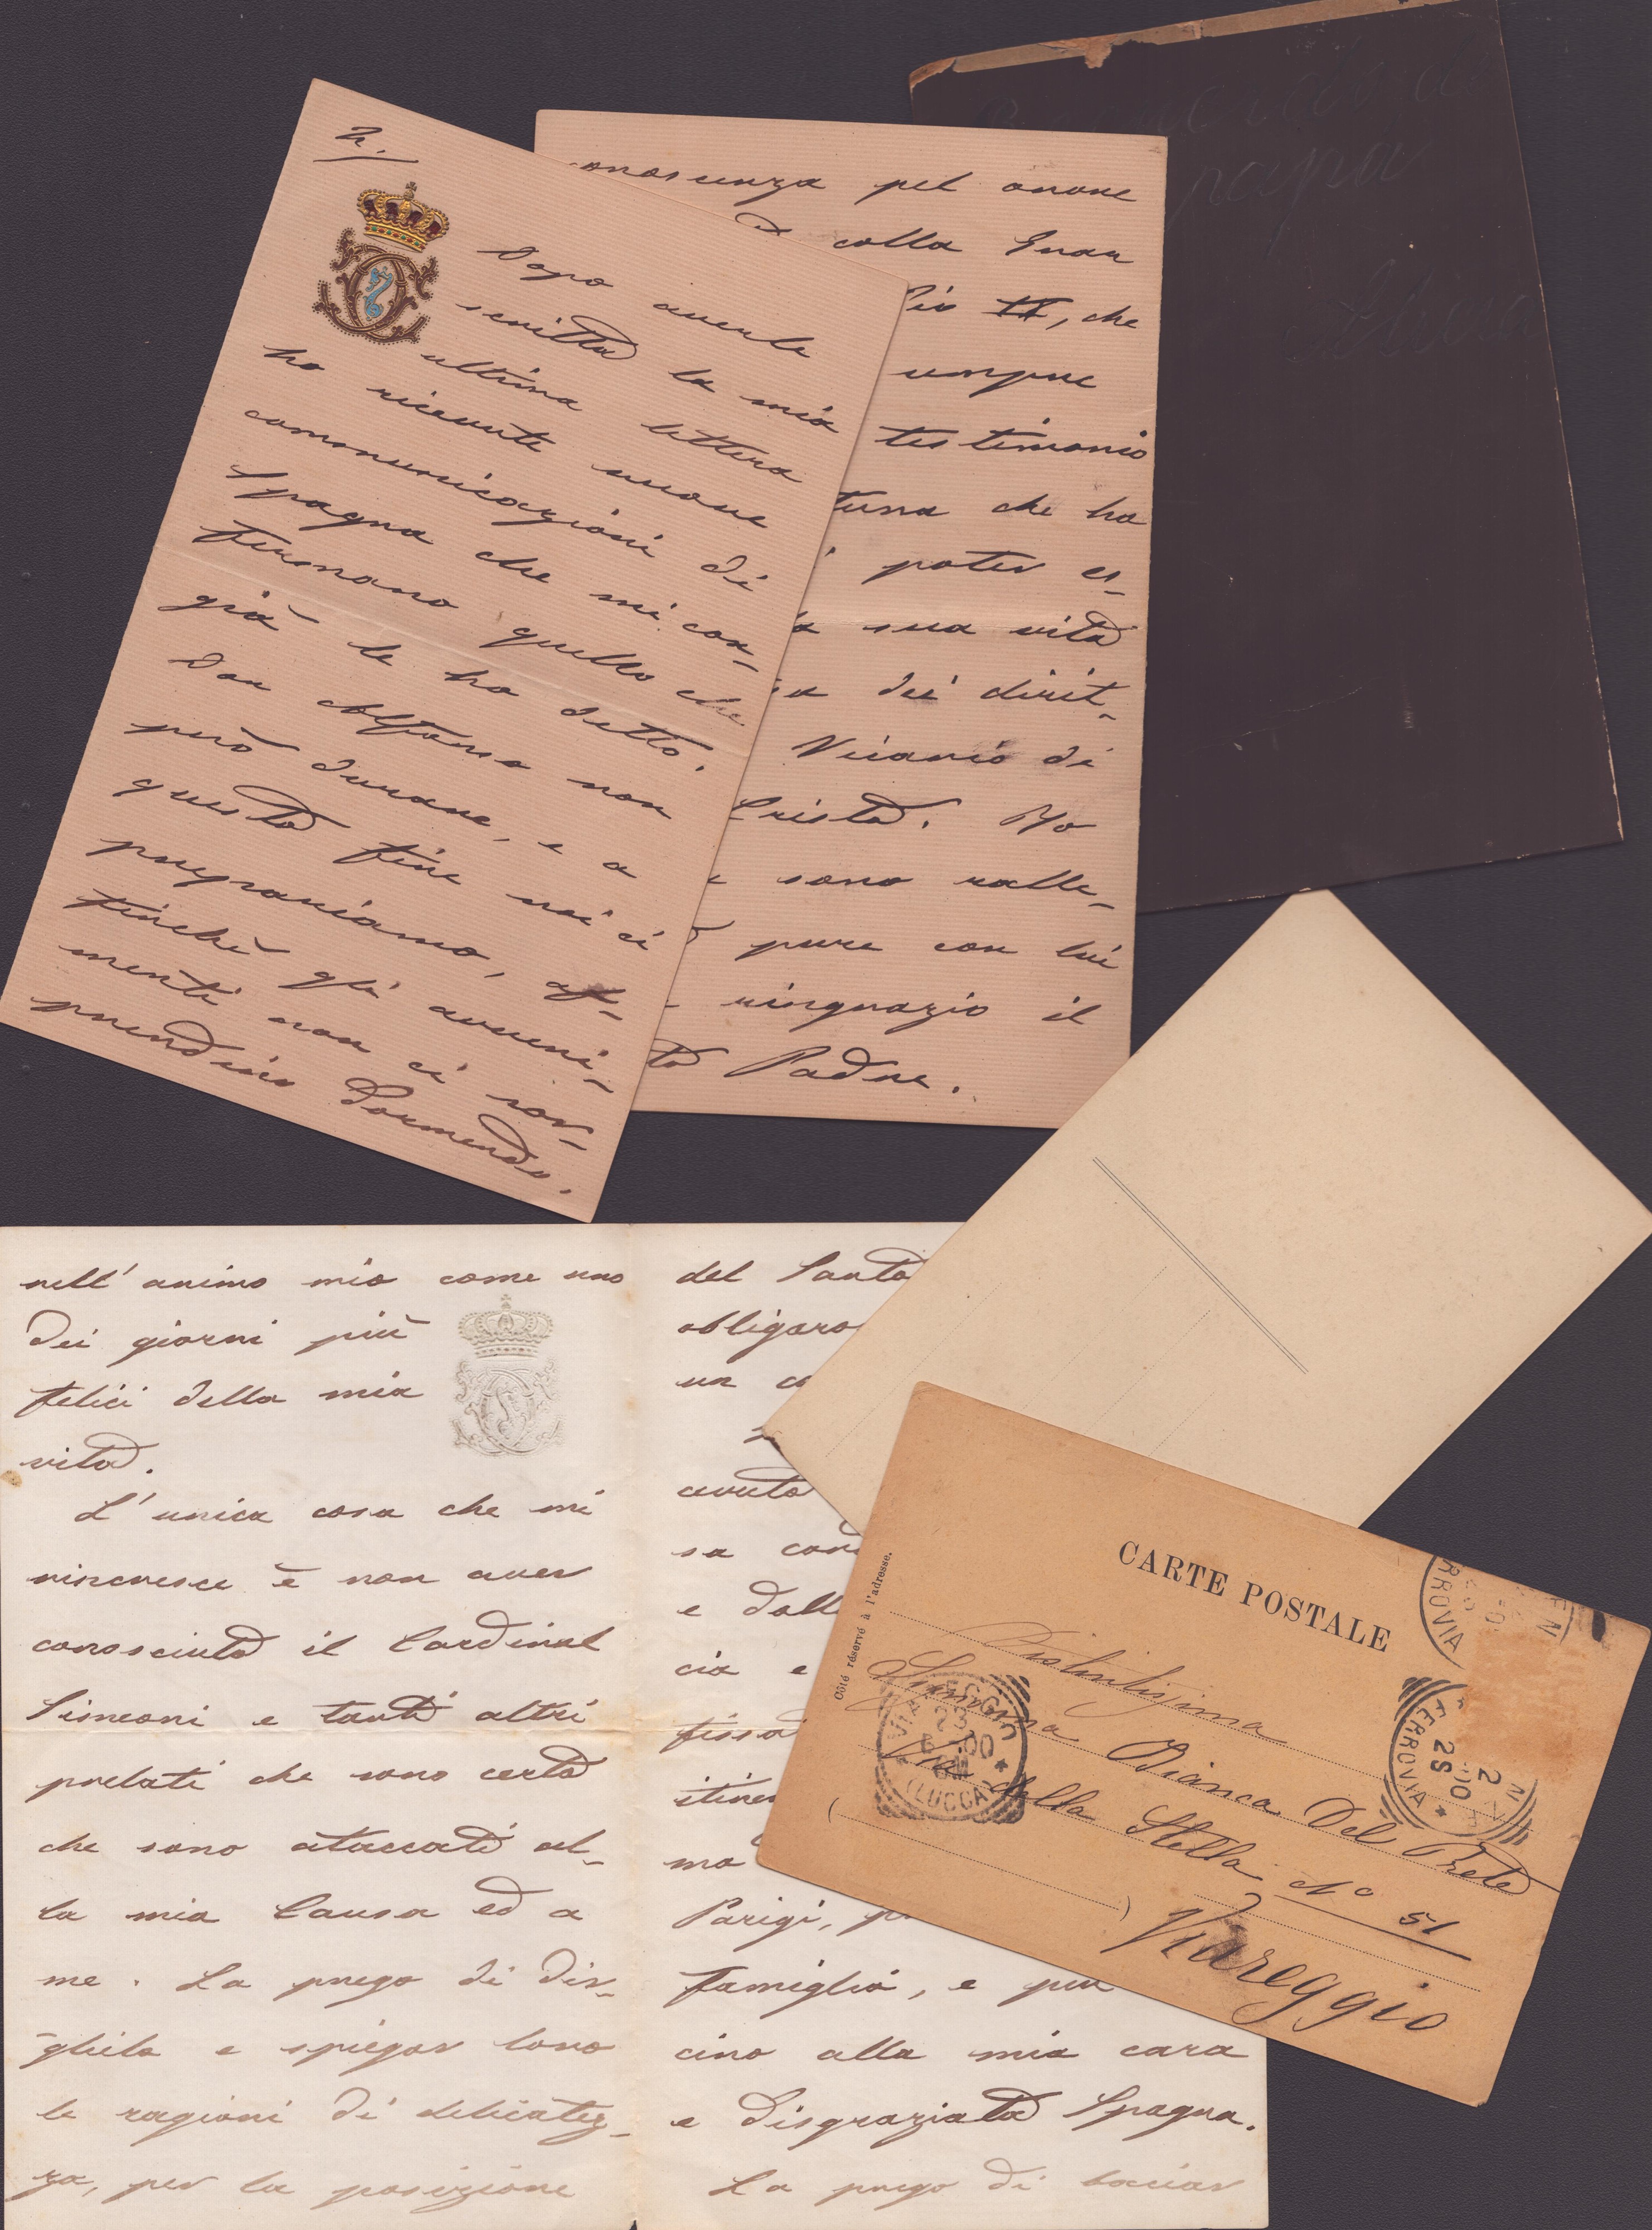 2.
Dopo averle
scritto la mia
ultima lettera
ho ricevute nuove
communicazioni di
Spagna che mi con-
fermano quello che
già le ho detto.
Don Alfonso non
però durare, e a
questo fine noi ci
prepariamo, af-
finchè gli avveni-
menti non ci sor-
prendino dormendo.
conoscenza pel onore
colla Gran
Pio IX, che
sempre
testimonio
che ha
poter es-
la sua vita
dei dirit-
Vicario di
Cristo. Mo
sono ralle-
pure con lui
ringrazio il
Padre.
papa
nell' animo mio come uno
dei giorni più
felici della mia
vita.
L'unica cosa che mi
rincresce è non aver
conosciuto il Cardinal
Simeoni e tanti altri
prelati che sono certo
che sono ataccati al-
la mia Causa ed a
me. La prego di dir-
glielo e spiegar loro
le ragioni di delicatez-
za, per la posizione
del Santo
obligaro
un
cevuto
sa
e dall
cia e
fissa
itiner
mo
Parigi,
famiglia, e piu
cino alla mia cara
e disgraziata Spagna.
La prego di baciar
CARTE POSTALE
Côté réservé à l'adresse.
Distintissima
Signorina Bianca Del Prete
Via della Stella N° 51
Viareggio
VIAREGGIO
23
00
(LUCCA)
FERROVIA
FERROVIA